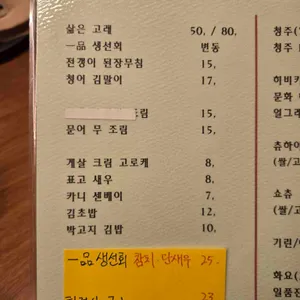 삶은 고래 50, / 80,
一品 생선회 변동
전갱이 된장무침 15,
청어 김말이 17,
15,
문어 무 조림 15,
게살 크림 고로케 8,
표고 새우 8,
카니 센베이 7,
김초밥 12,
박고지 김밥 10,
一品 생선회 참치·단새우 25.
23
청주(
청주
히비키
문화
얼그레
츄하이
(쌀/고
쇼츄
(쌀/고
기린/
화요(
일품진